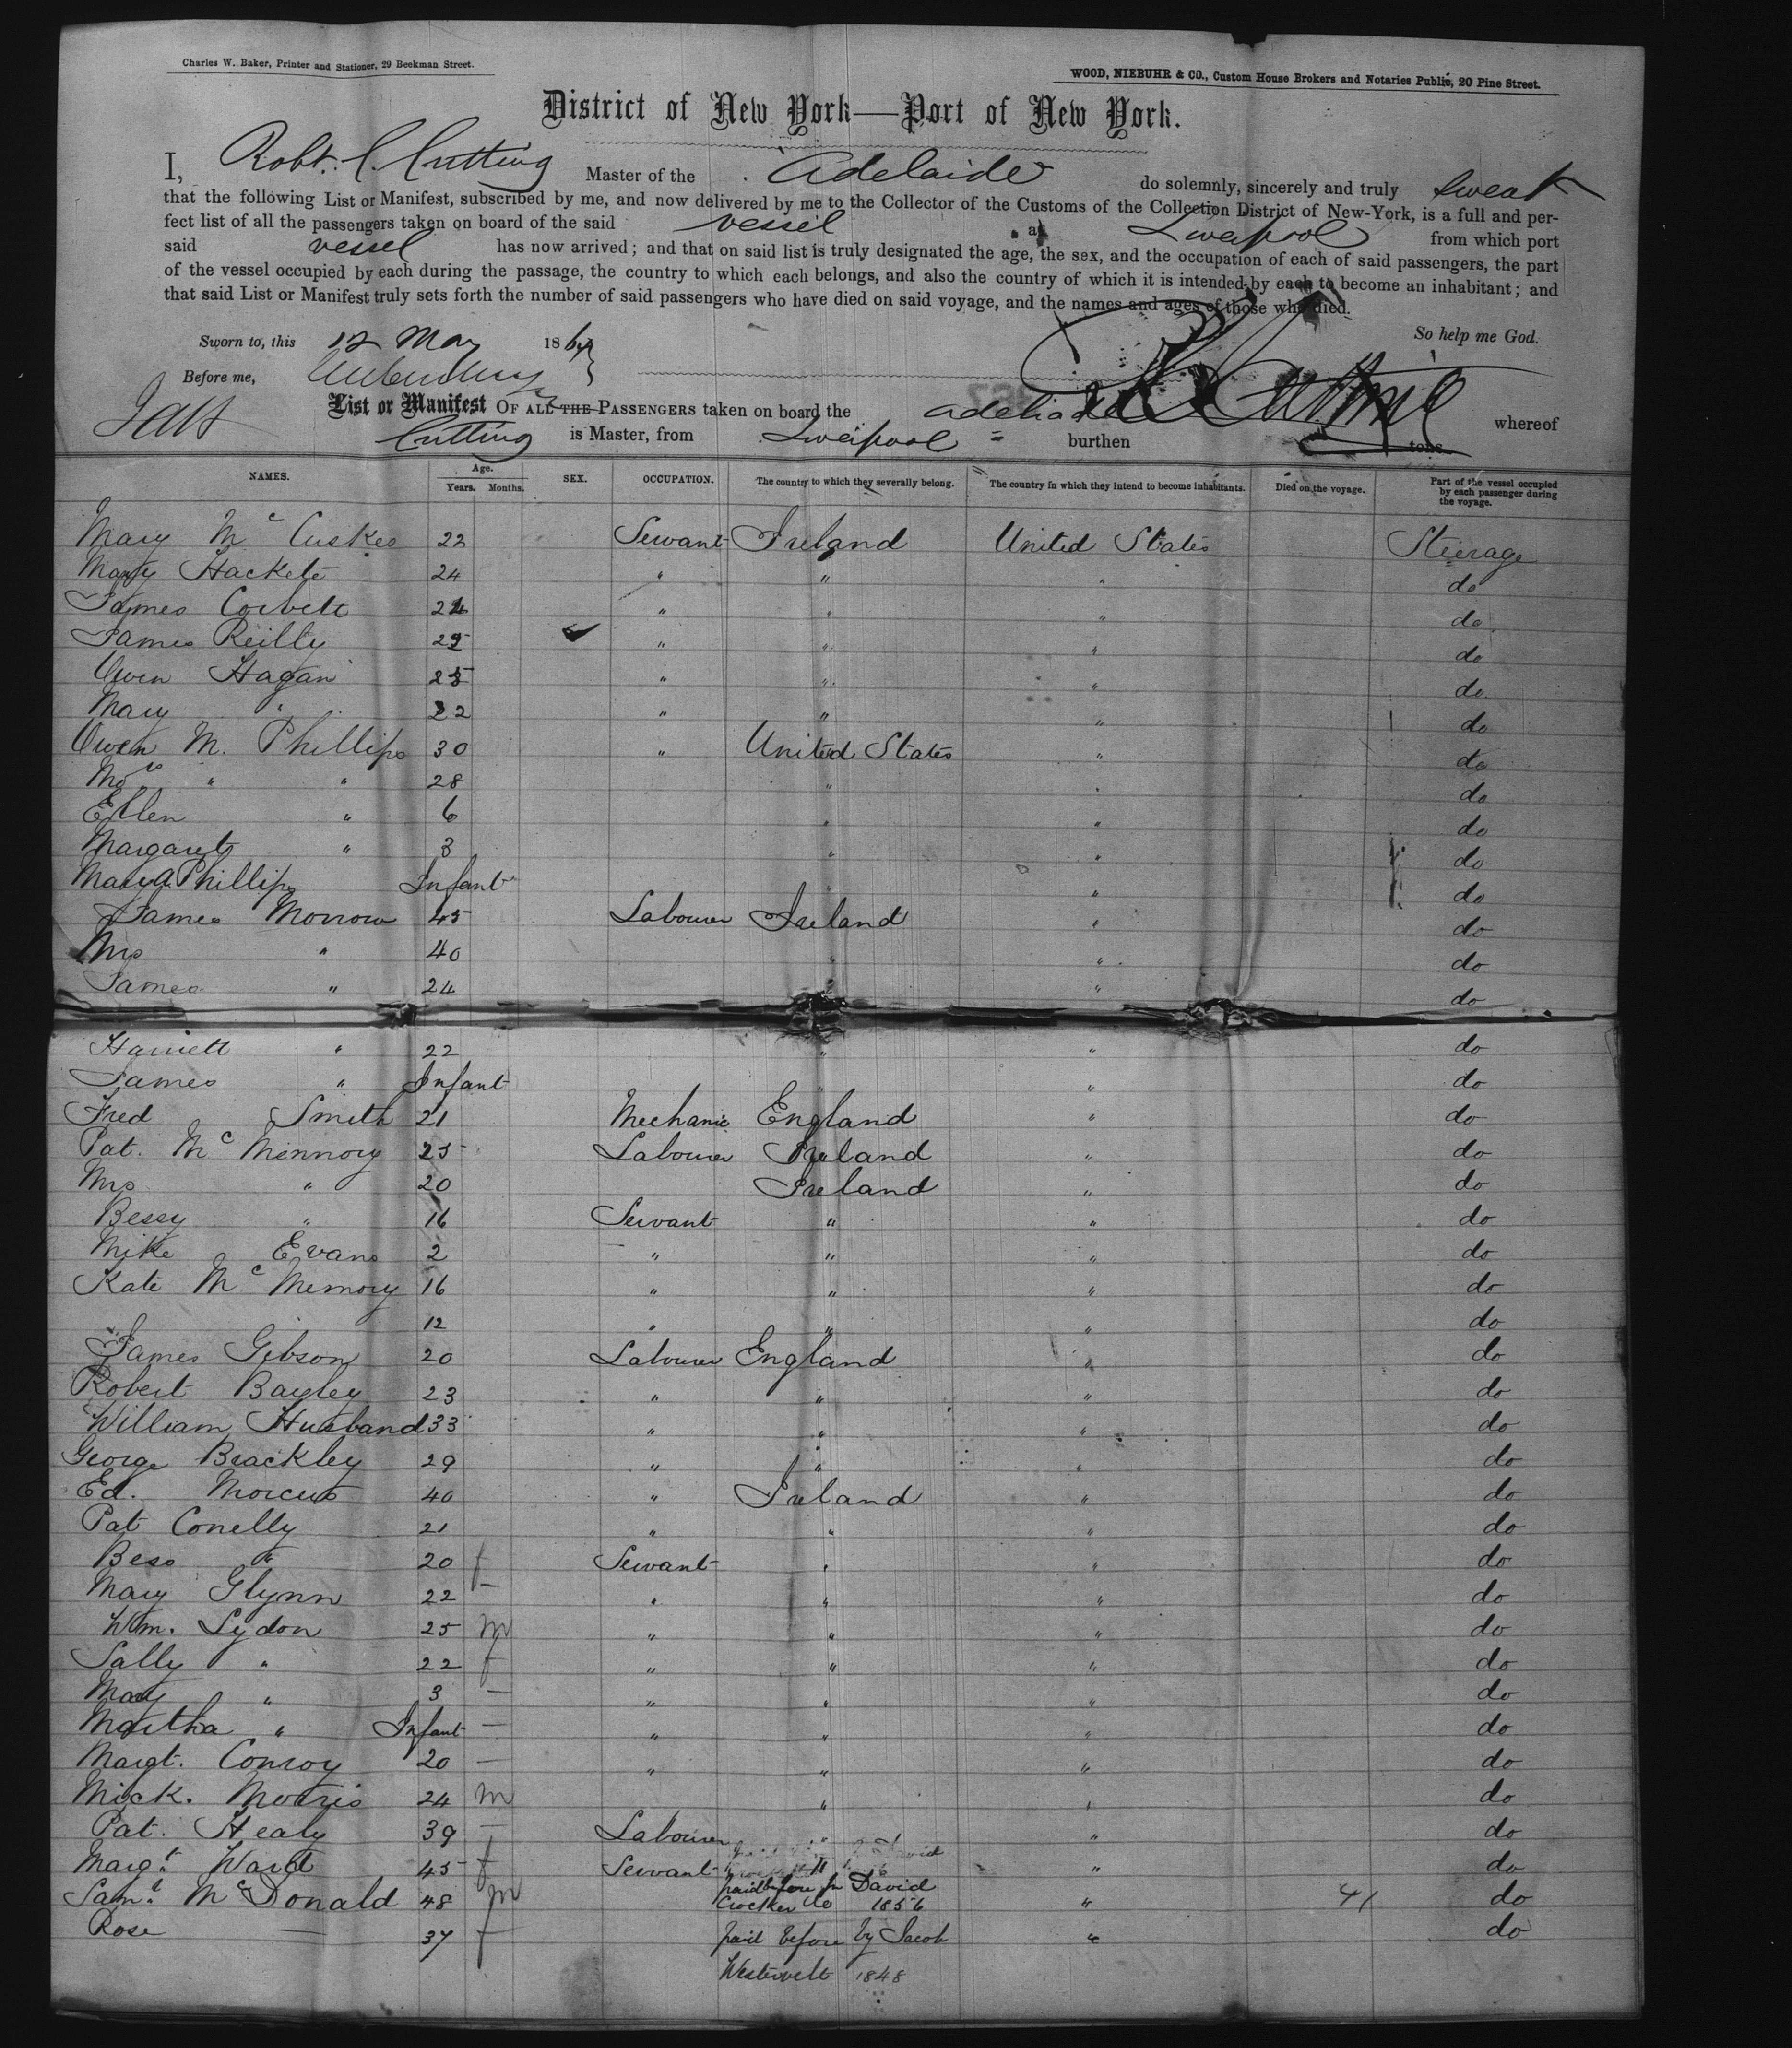 Charles W. Baker, Printer and Stationer, 29 Beekman Street.
WOOD, NIEBUHR & CO., Custom House Brokers and Notaries Public, 20 Pine Street.
District of New York—Port of New York.
I, Robt. C. Cutting Master of the Adelaide do solemnly, sincerely and truly swear
that the following List or Manifest, subscribed by me, and now delivered by me to the Collector of the Customs of the Collection District of New-York, is a full and per-
fect list of all the passengers taken on board of the said vessel at Liverpool from which port
said vessel has now arrived; and that on said list is truly designated the age, the sex, and the occupation of each of said passengers, the part
of the vessel occupied by each during the passage, the country to which each belongs, and also the country of which it is intended by each to become an inhabitant; and
that said List or Manifest truly sets forth the number of said passengers who have died on said voyage, and the names and ages of those who died.
So help me God.
Sworn to, this 12 May 186
Before me,
List or Manifest OF ALL THE PASSENGERS taken on board the Adelaide whereof
Cutting is Master, from Liverpool burthen tons
NAMES. Age. Years. Months. SEX. OCCUPATION. The country to which they severally belong. The country in which they intend to become inhabitants. Died on the voyage. Part of the vessel occupied by each passenger during the voyage.
Mary Mc Cusker 22 Servant Ireland United States Steerage
Mary Hackett 24 " " " do
James Corbett 24 " " " do
James Reilly 25 " " " do
Owen Hagan 25 " " " do
Mary " 22 " " " do
Owen M. Phillips 30 " United States " do
Mrs " " 28 " " do
Ellen " 6 " " do
Margaret " 3 " " do
Mary A Phillips Infant " " do
James Morrow 45 Labourer Ireland " do
Mrs " 40 " " do
James " 24 " " do
Harriett " 22 " " do
James " Infant " " do
Fred Smith 21 Mechanic England " do
Pat. Mc Minnory 25 Labourer Ireland " do
Mrs " 20 Ireland " do
Bessy " 16 Servant " " do
Mike Evans 2 " " " do
Kate Mc Memory 16 " " " do
12 " " " do
James Gibson 20 Labourer England " do
Robert Bayley 23 " " " do
William Husband 33 " " " do
George Brackley 29 " " " do
Ed. Morcus 40 " Ireland " do
Pat Conelly 21 " " " do
Bess " 20 f Servant " " do
Mary Glynn 22 — " " " do
Wm. Lydon 25 m " " " do
Sally " 22 f " " " do
Mary " 3 — " " " do
Martha " Infant — " " " do
Margt. Conroy 20 — " " " do
Mick. Morris 24 m " " do
Pat. Healy 39 — Labourer " " do
Margt. Ward 45 f Servant " do
Saml. McDonald 48 m paid before for David Crocker Co 1856 " 41 do
Rose — 37 f paid before by Jacob " do
Westervelt 1848